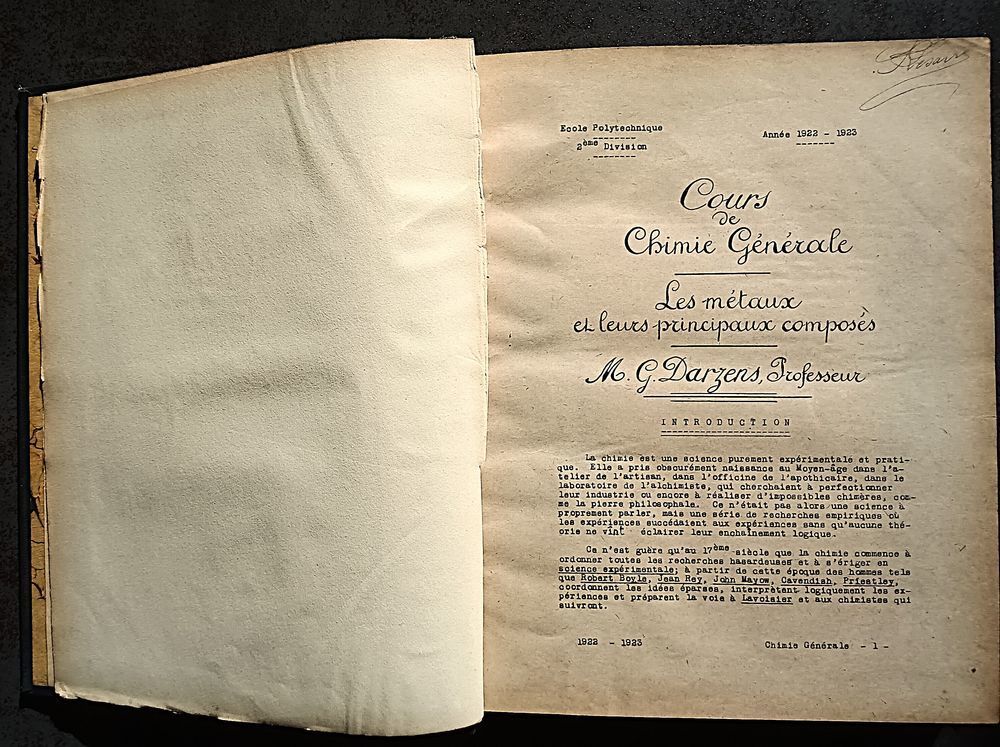 Ecole Polytechnique
2ème Division
Année 1922 - 1923
Cours
de
Chimie Générale
Les métaux
et leurs principaux composés
M. G. Darzens, Professeur
INTRODUCTION
La chimie est une science purement expérimentale et prati-
que. Elle a pris obscurément naissance au Moyen-âge dans l'a-
telier de l'artisan, dans l'officine de l'apothicaire, dans le
laboratoire de l'alchimiste, qui cherchaient à perfectionner
leur industrie ou encore à réaliser d'impossibles chimères, com-
me la pierre philosophale. Ce n'était pas alors une science à
proprement parler, mais une série de recherches empiriques où
les expériences succédaient aux expériences sans qu'aucune thé-
orie ne vint éclairer leur enchainement logique.
Ce n'est guère qu'au 17ème siècle que la chimie commence à
ordonner toutes les recherches hasardeuses et à s'ériger en
science expérimentale; à partir de cette époque des hommes tels
que Robert Boyle, Jean Rey, John Mayow, Cavendish, Priestley,
coordonnent les idées éparses, interprètent logiquement les ex-
périences et préparent la voie à Lavoisier et aux chimistes qui
suivront.
1922 - 1923
Chimie Générale - 1 -